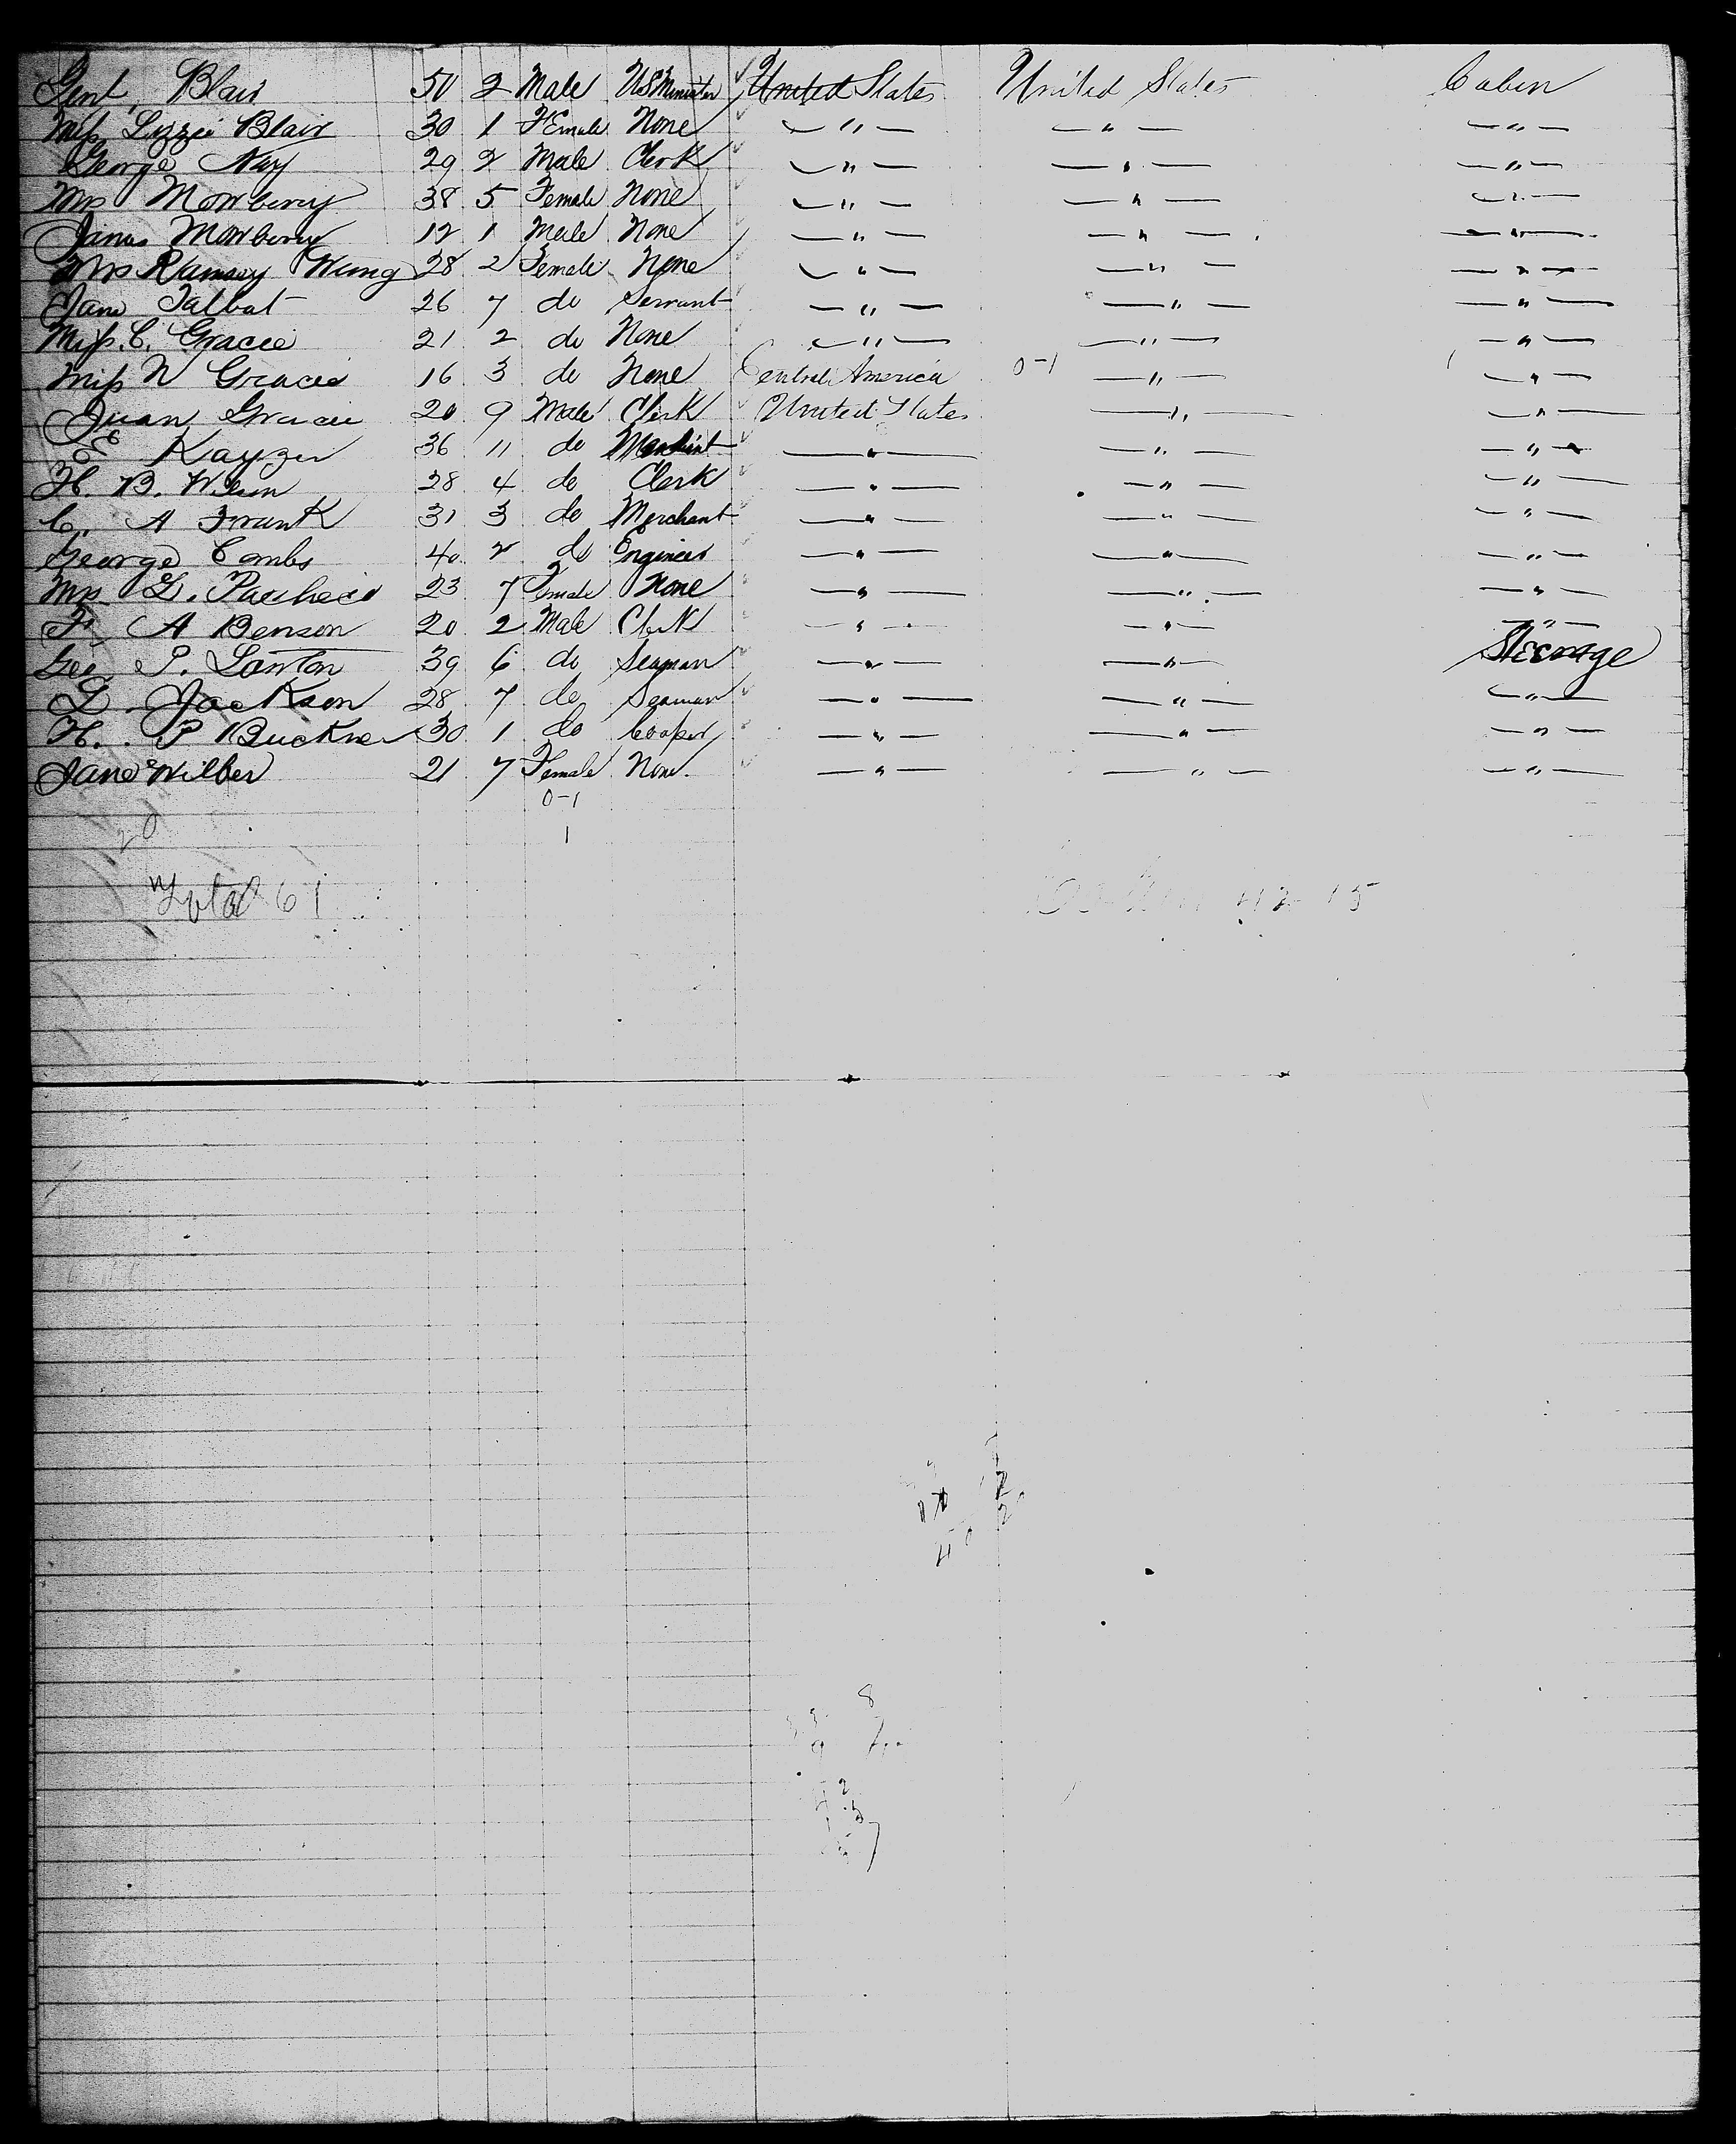 Genl. Blair 50 2 Male US Minister United States United States Cabin
Miss Lizzie Blair 30 1 Female None — " — — " — — " —
George Nay 29 2 Male Clerk — " — — " — — " —
Mrs Mowberry 38 5 Female None — " — — " — — " —
James Mowberry 12 1 Male None — " — — " — — " —
Mrs Ramsey 28 2 Female None — " — — " — — " —
Jane Talbot 26 7 do Servant — " — — " — — " —
Miss C. Gracie 21 2 do None — " — — " — — " —
Miss N Gracie 16 3 do None Central America 0-1 — " — — " —
Juan Gracie 20 9 Male Clerk United States — " — — " —
E Kayzer 36 11 do Merchant — " — — " — — " —
H. B. 28 4 do Clerk — " — — " — — " —
C. A Frank 31 3 do Merchant — " — — " — — " —
George Combs 40 2 do Engineer — " — — " — — " —
Mrs L. Pacheco 23 7 Female None — " — — " — — " —
F. A Benson 20 2 Male Clerk — " — — " — — " —
Geo P. Lawton 39 6 do Seaman — " — — " — Steerage
D. Jackson 28 7 do Seaman — " — — " — — " —
H. P Buckner 30 1 do Cooper — " — — " — — " —
Jane Wilber 21 7 Female None. — " — — " — — " —
0-1
20
1
Total 61
42 15